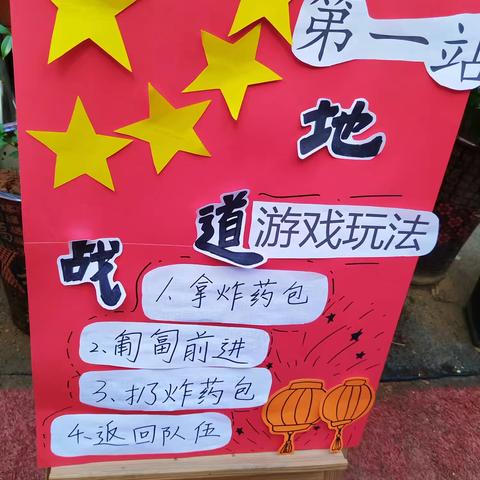 第一站
地道战
游戏玩法
1、拿炸药包
2、匍匐前进
3、扔炸药包
4、返回队伍